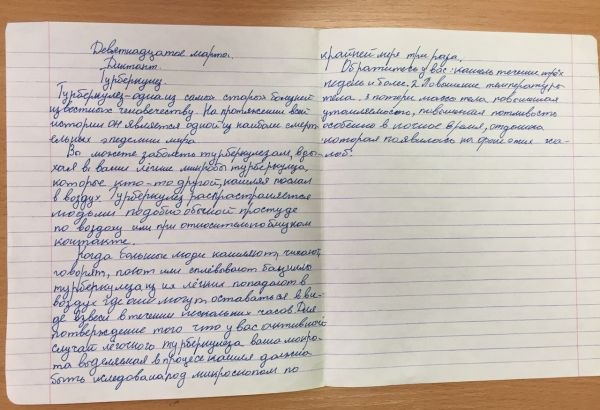 Девятнадцатое марта.
Диктант.
Турберкулиз.
Турберкулез-одна из самой старой болезней
известных человечеству. На протяжении всей
истории он является одной из наиболи смерт-
ельных эпедемии мира.
Вы можете заболеть турберкулезам, вдо-
хая в ваши лёгкие микробы турберкулёза,
которые кто-то другой, кашляя послал
в воздух. Турберкулёз распространяется
людьми подобно обычной простуде
по воздоху или при относительно близком
контакте.
Когда больные люди кашляют, чихают,
говорят, поют или сплёвовают бациллы
турберкулёза из их лёгких попадают в
воздух где они могут оставаться в ви-
де взвеси в течении нескольких часов. Для
потверждение того что у вас активной
случай лёгочного турберкулеза ваша мокро-
та выделяемая в процесе кашля должна
быть иследована род микроскопом по
крайней мере три раза.
Обратитесь у вас: кашель течении трёх
недели и более, 2 Повышение температуры
тела. 3 потери массы тела повышенная
утамляемость, повышенная потливость
особенно в ночное время, отдышка
которая появилась на фоне этих жа-
лоб.